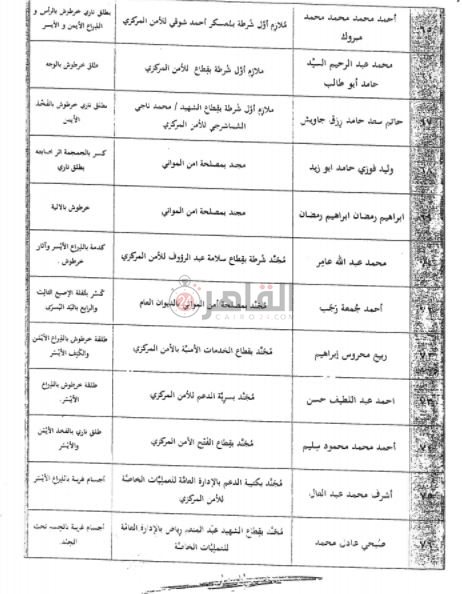 أحمد محمد محمد محمد مبروك
مُلازم أوَّل شرطة بمُعسكر أحمد شوقي للأمن المركزي
بطلق ناري خرطوش بالرأس و الذراع الأيمن و الأيسر
٦٥
محمد عبد الرحيم السيِّد حامد أبو طالب
ملازم أوَّل شُرطة بقِطاع للأمن المركزي
طلق خرطوش بالوجه
حاتم سعد حامد رزق جاويش
ملازم أوَّل شُرطة بقِطاع الشهيد / محمد ناجي الشماشرجي للأمن المركزي
بطلق ناري خرطوش بالفَخْذ الأيمن
٦٧
وليد فوزي حامد ابو زيد
مجند بمصلحة امن المواني
كسر بالجمجمة اثر اصابته بطلق ناري
٦٨
ابراهيم رمضان ابراهيم رمضان
مجند بمصلحة امن المواني
خرطوش بالالية
٦٩
محمد عبد الله عامر
مُجَنَّد شُرطة بقِطاع سلامة عبد الرؤوف للأمن المركزي
كدمة بالذراع الأيْسر وآثار خرطوش .
أحمد جُمعة رَجَب
مُجَنَّد بمصلحة أمن المواني بالديوان العام
كَسْر بالإصبع الثالث والرابع باليَد اليُسرَى
القاهرة
CAIRO24.COM
ربيع محروس إبراهيم
مُجَنَّد بقِطاع الخدمات الأمنيَّة بالأمن المركزي
طلقة خرطوش بالذراع الأيْمَن والكَتِف الأيْسَر
٧٣
احمد عبد اللطيف حسن
مُجَنَّد بسريَّة الدعم للأمن المركزي
طلقة خرطوش بالذراع الأيْسَر.
أحمد محمد محمود سليم
مُجَنَّد بقِطاع الفَتْح الأمن المركزي
طلق ناري بالفخذ الأيْمَن والأيْسَر
أشرف محمد عبد العال
مُجَنَّد بكتيبة الدعم بالإدارة العامَّة للعمليَّات الخاصَّة للأمن المركزي
أجسام غريبة بالذراع الأيْسَر
٧٥
صُبحي عادل محمد
مُجَنَّد بقِطاع الشهيد عبد المنعم رياض بالإدارة العامَّة للعمليَّات الخاصَّة
أجسام غريبة بالجسم تحت الجلد.
٧٦